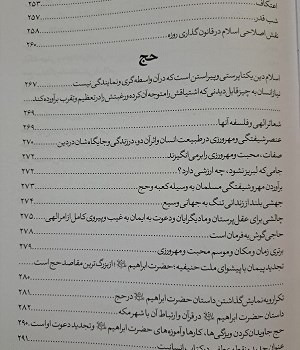 اعتکاف ۲۵۳
شب قدر ۲۵۷
نقش اصلاحی اسلام در قانون گذاری روزه ۲۵۸
۲۶۰
حج
اسلام دین یکتاپرستی و پیراستن است که در آن واسطه‌گری و نمایندگی نیست ۲۶۷
نیاز انسان به چیز قابل دیدنی که اشتیاقش را متوجه آن کرده و رغبتش را در تعظیم و تقرب برآورده کند
۲۶۹
شعائر الهی و فلسفه آنها ۲۶۹
عنصر شیفتگی و مهرورزی در طبیعت انسان و اثر آن دو، در زندگی و جایگاه‌شان در دین ۲۷۰
صفات، محبت و مهرورزی را برمی انگیزند ۲۷۲
جامی که لبریز نشود، چه ارزشی دارد؟ ۲۷۲
برآوردن مهر و شیفتگی مسلمان به وسیله کعبه و حج ۲۷۳
جهشی بلند از زندانی تنگ به جهانی وسیع ۲۷۴
چالشی برای عقل پرستان و مادیگرایان و دعوت به ایمان به غیب و پیروی کامل از امر الهی ۲۷۵
حاجی گوش به فرمان است ۲۷۸
برتری زمان و مکان و موسم محبت و مهرورزی ۲۷۹
تجدید پیمان با پیشوای ملت حنیفیه؛ «حضرت ابراهیم ﷺ» از بزرگ‌ترین مقاصد حج است
۲۸۰
تکرار و به نمایش گذاشتن داستان حضرت ابراهیم ﷺ در حج ۲۸۱
داستان حضرت ابراهیم ﷺ در قرآن و ارتباط آن با شهر مکه ۲۸۲
حج جاویدان کردن ویژگی‌ها، کارها و آموزه‌های حضرت ابراهیم ﷺ و تجدید دعوت او است ۲۹۰
۲۹۱